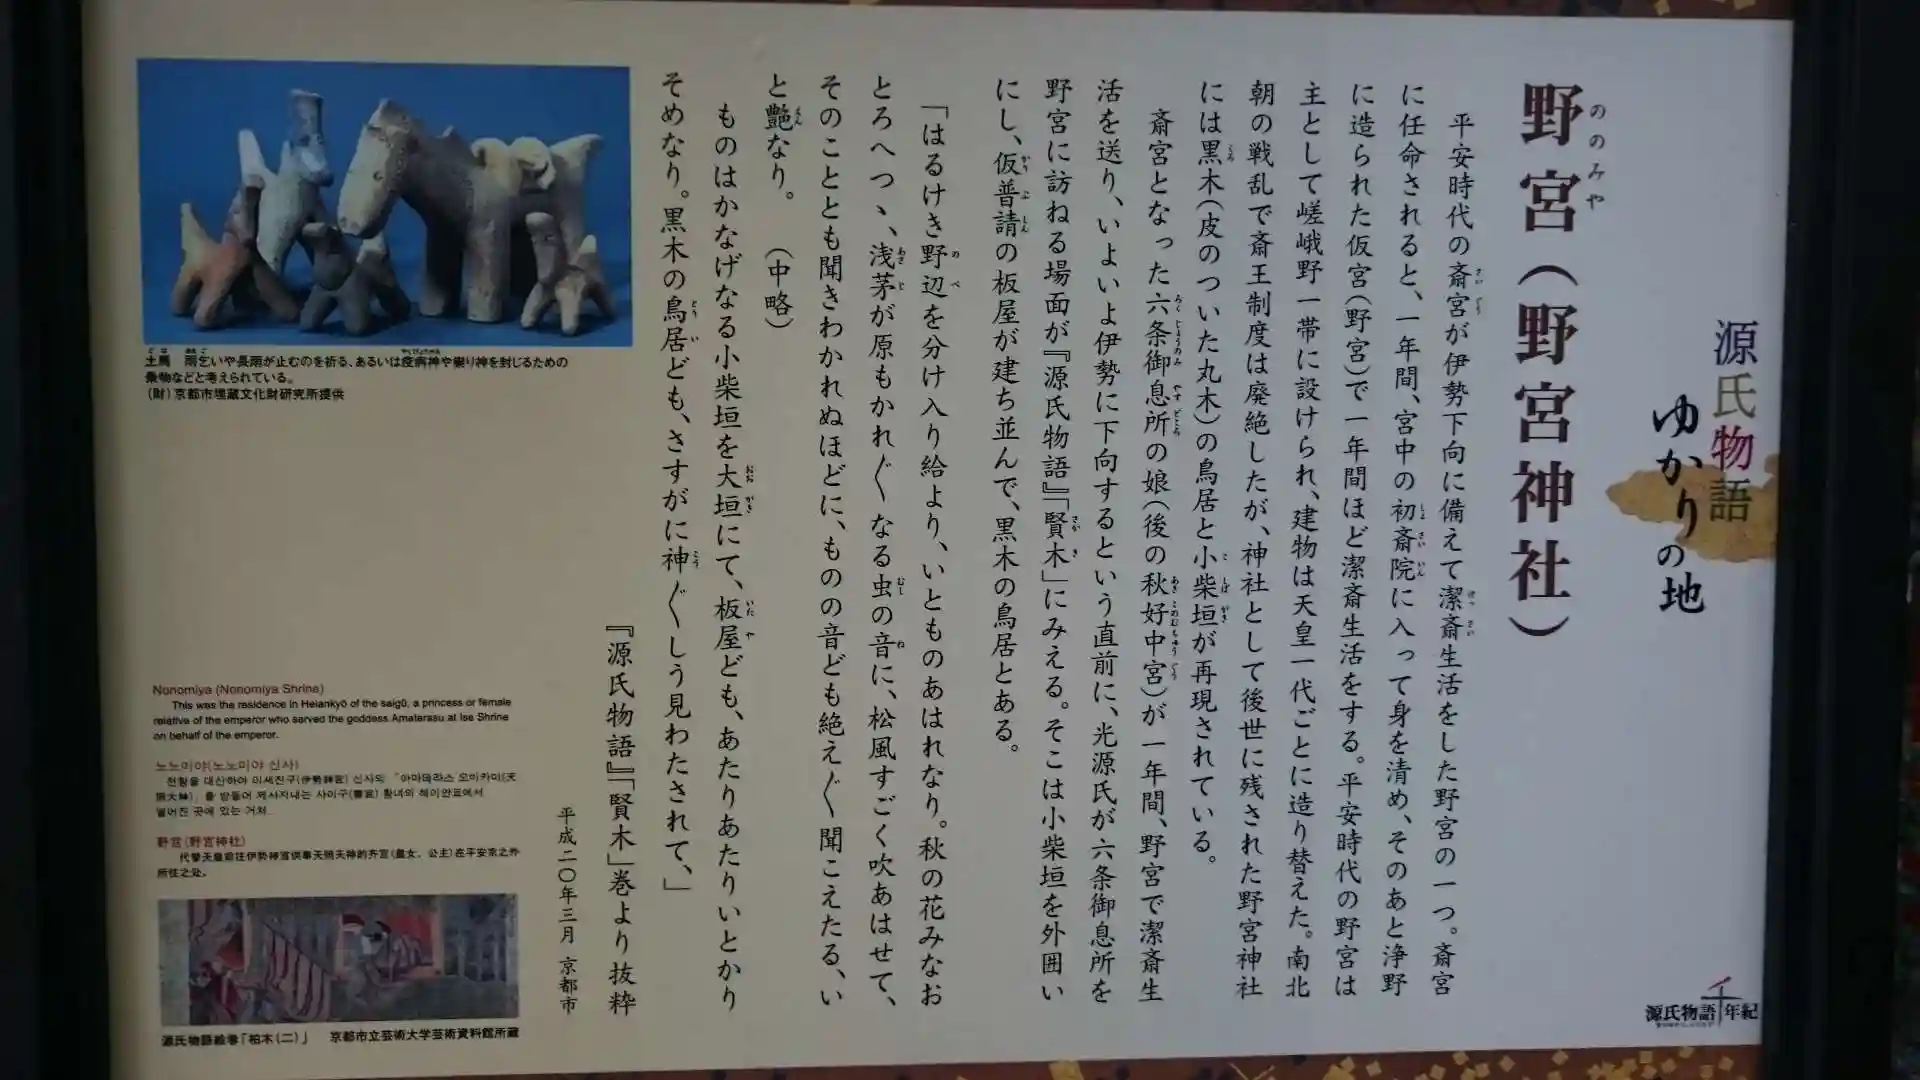 源氏物語
ゆかりの地
野宮（野宮神社）
ののみや
平安時代の斎宮が伊勢下向に備えて潔斎生活をした野宮の一つ。斎宮
に任命されると、一年間、宮中の初斎院に入って身を清め、そのあと浄野
に造られた仮宮（野宮）で一年間ほど潔斎生活をする。平安時代の野宮は
主として嵯峨野一帯に設けられ、建物は天皇一代ごとに造り替えた。南北
朝の戦乱で斎王制度は廃絶したが、神社として後世に残された野宮神社
には黒木（皮のついた丸木）の鳥居と小柴垣が再現されている。
斎宮となった六条御息所の娘（後の秋好中宮）が一年間、野宮で潔斎生
活を送り、いよいよ伊勢に下向するという直前に、光源氏が六条御息所を
野宮に訪ねる場面が『源氏物語』「賢木」にみえる。そこは小柴垣を外囲い
にし、仮普請の板屋が建ち並んで、黒木の鳥居とある。
「はるけき野辺を分け入り給より、いとものあはれなり。秋の花みなお
とろへつゝ、浅茅が原もかれ〴〵なる虫の音に、松風すごく吹あはせて、
そのこととも聞きわかれぬほどに、ものの音ども絶え〴〵聞こえたる、い
と艶なり。　（中略）
ものはかなげなる小柴垣を大垣にて、板屋ども、あたりあたりいとかり
そめなり。黒木の鳥居ども、さすがに神〴〵しう見わたされて、」
『源氏物語』「賢木」巻より抜粋
平成二〇年三月　京都市
土馬　雨乞いや長雨が止むのを祈る、あるいは疫病神や祟り神を封じるための
乗物などと考えられている。
（財）京都市埋蔵文化財研究所提供
Nonomiya (Nonomiya Shrine)
This was the residence in Heiankyō of the saigū, a princess or female
relative of the emperor who served the goddess Amaterasu at Ise Shrine
on behalf of the emperor.
노노미야(노노미야 신사)
천황을 대신하여 이세진구(伊勢神宮) 신사의 「아마테라스 오미카미(天
照大神)」를 받들어 제사지내는 사이구(斎宮) 황녀의 헤이안쿄에서
떨어진 곳에 있는 거처.
野宫(野宫神社)
代替天皇前往伊势神宫供奉天照大神的齐宫(皇女、公主)在平安京之外
所住之处。
源氏物語絵巻「柏木（二）」　京都市立芸術大学芸術資料館所蔵
源氏物語千年紀